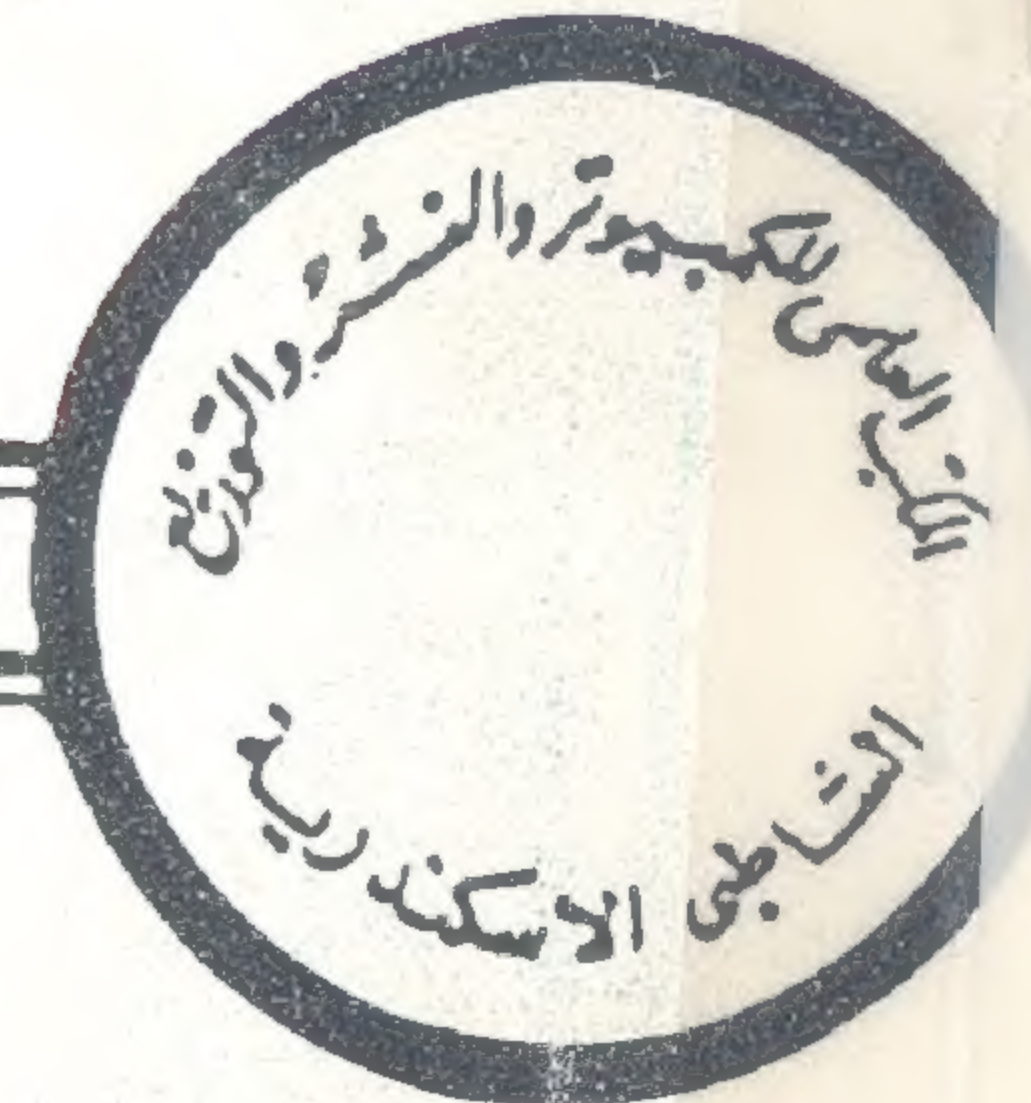 المكتب العلمى للكمبيوتر والنشر والتوزيع
الشاطبى الاسكندرية